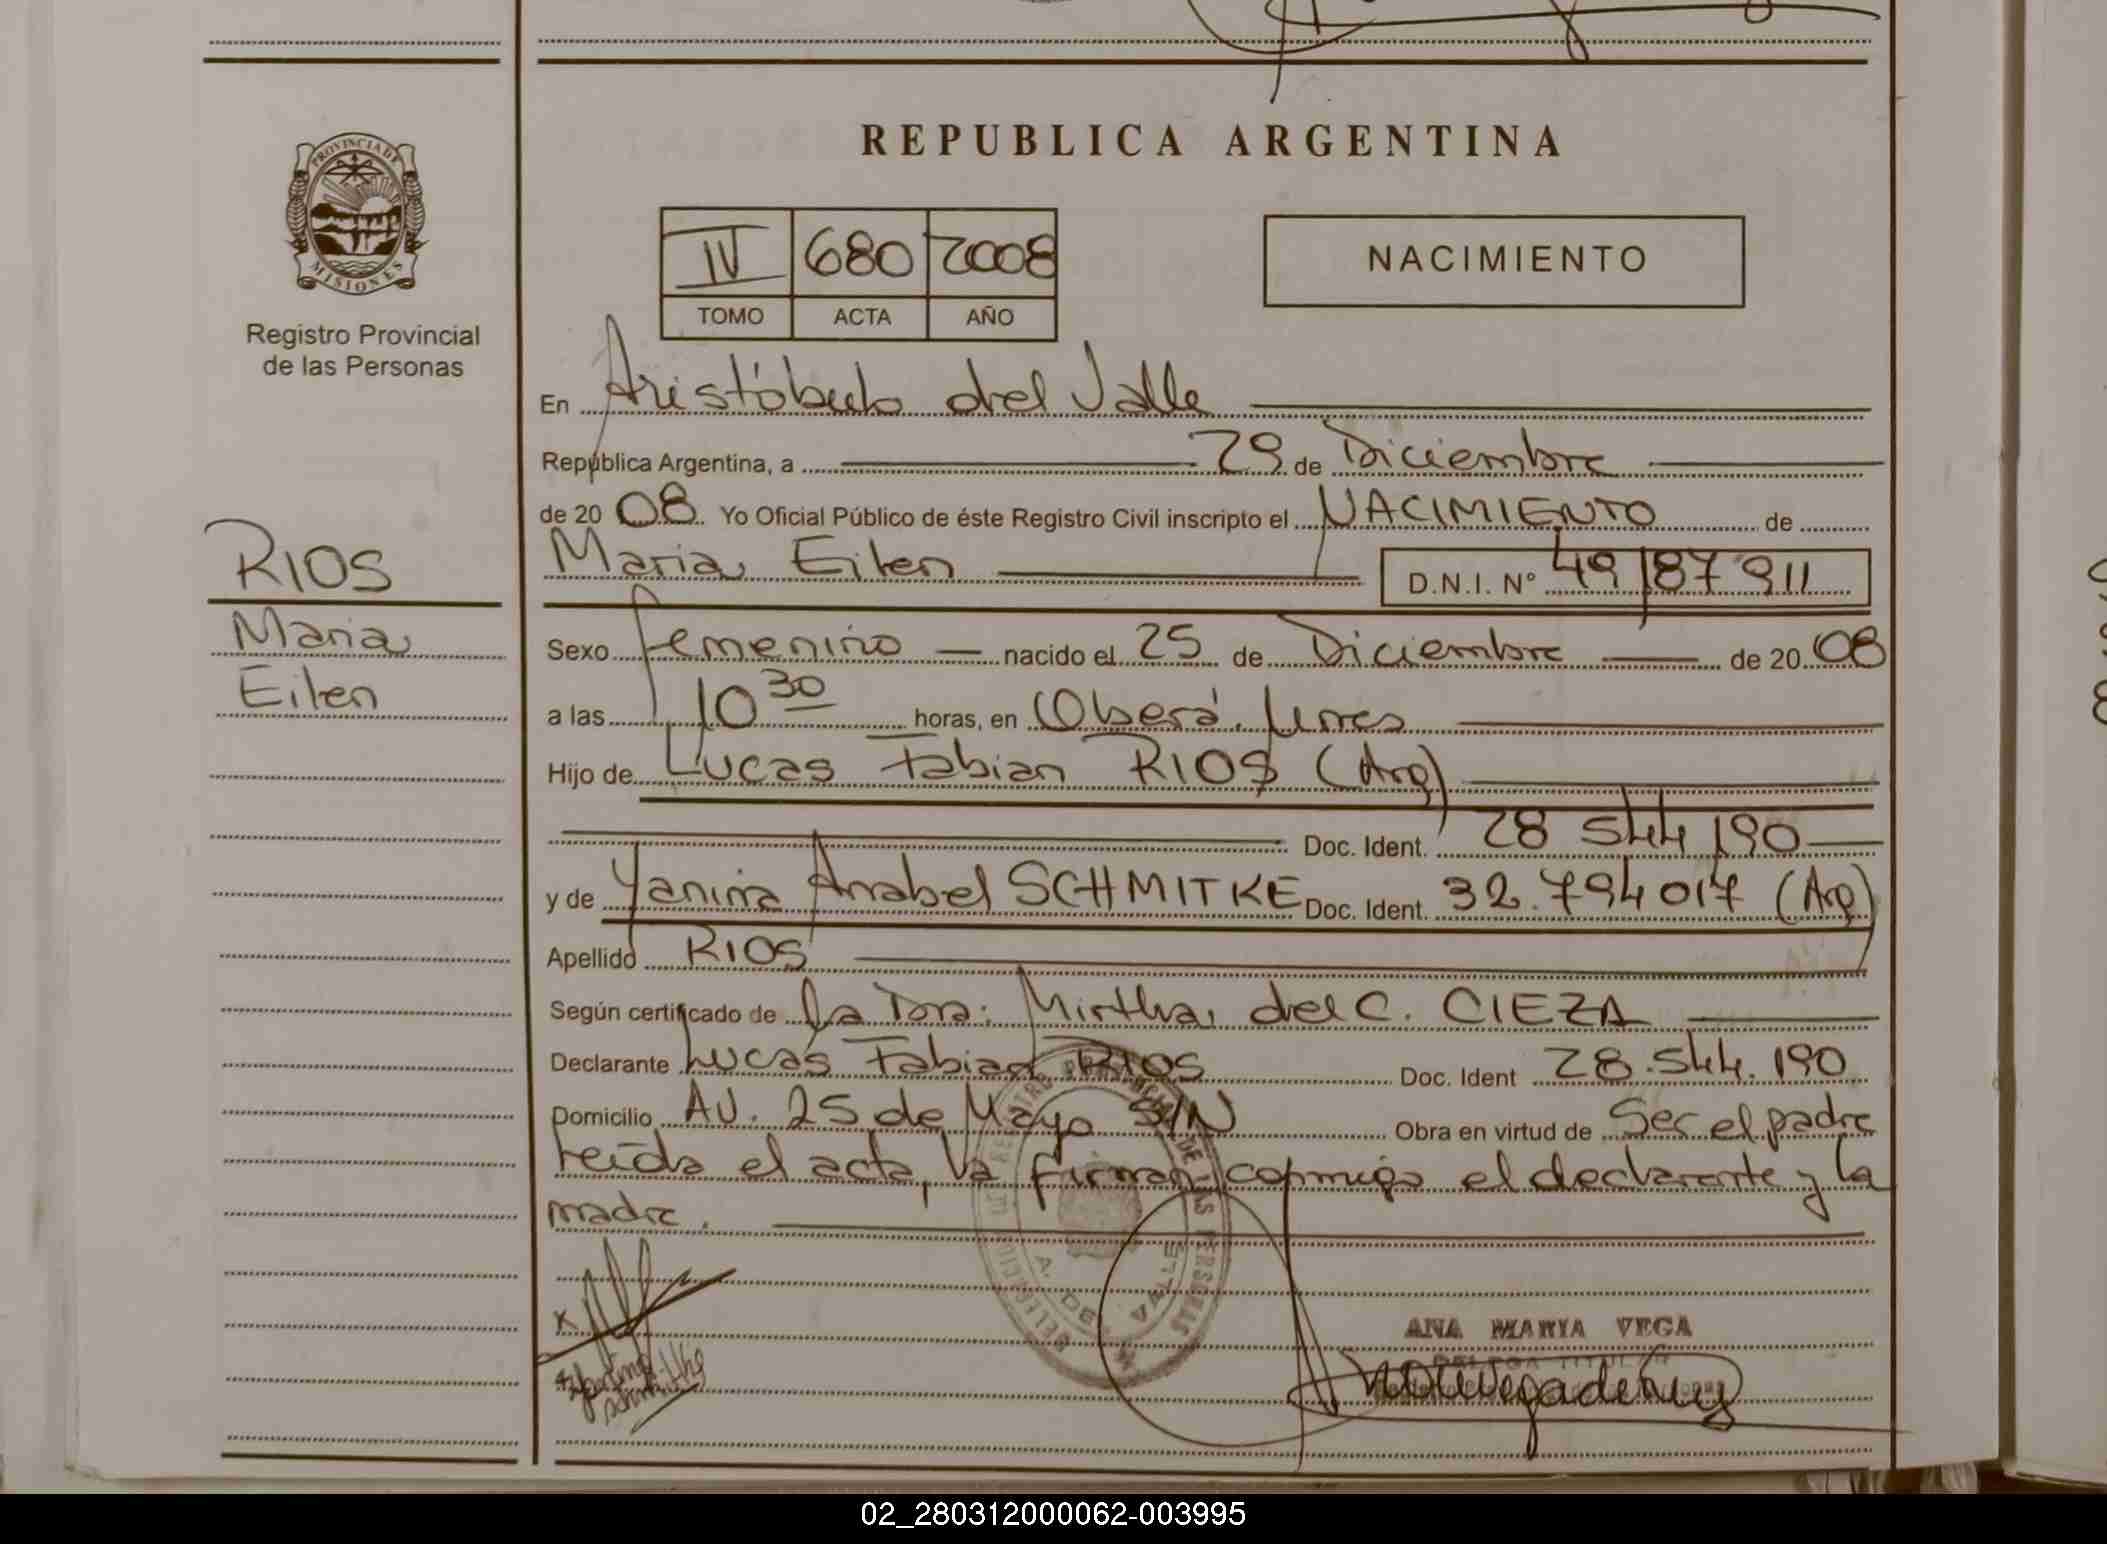 REPUBLICA ARGENTINA
PROVINCIA DE
MISIONES
Registro Provincial
de las Personas
IV 680 2008
TOMO ACTA AÑO
NACIMIENTO
En Aristóbulo del Valle
República Argentina, a 29 de Diciembre
de 20 08 Yo Oficial Público de éste Registro Civil inscripto el NACIMIENTO de
Maria Eilen D.N.I. N° 49187911
RIOS
Maria
Eilen
Sexo femenino nacido el 25 de Diciembre de 20 08
a las 10 30 horas, en Oberá.
Hijo de Lucas Fabian RIOS (Arg)
Doc. Ident. 28 544 190
y de Yanina Anabel SCHMITKE Doc. Ident. 32.794017 (Arg)
Apellido RIOS
Según certificado de la Dra. Mirtha del C. CIEZA
Declarante Lucas Fabian RIOS Doc. Ident 28.544.190
Domicilio AV. 25 de Mayo S/N Obra en virtud de Ser el padre
leída el acta, la firman conmigo el declarante y la
madre.
DE LAS PERSONAS
A. DEL VALLE
ANA MARIA VEGA
02_280312000062-003995